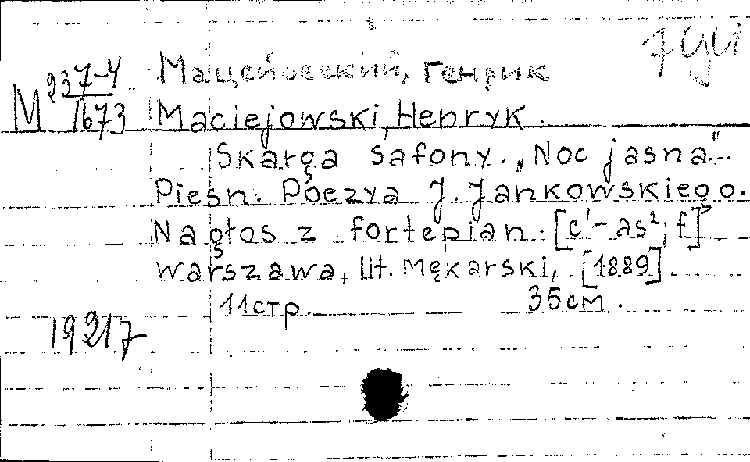 Мацейовский, Генрик
M 937-4/1673
Maciejowski, Henryk.
Skarga Safony. „Noc jasna“.
Pieśn. Poezya J. Jankowskiego.
Na głos z fortepian. [c¹-as², f]
Warszawa, lit. Mękarski, [1889].
11стр. 35см.
19217